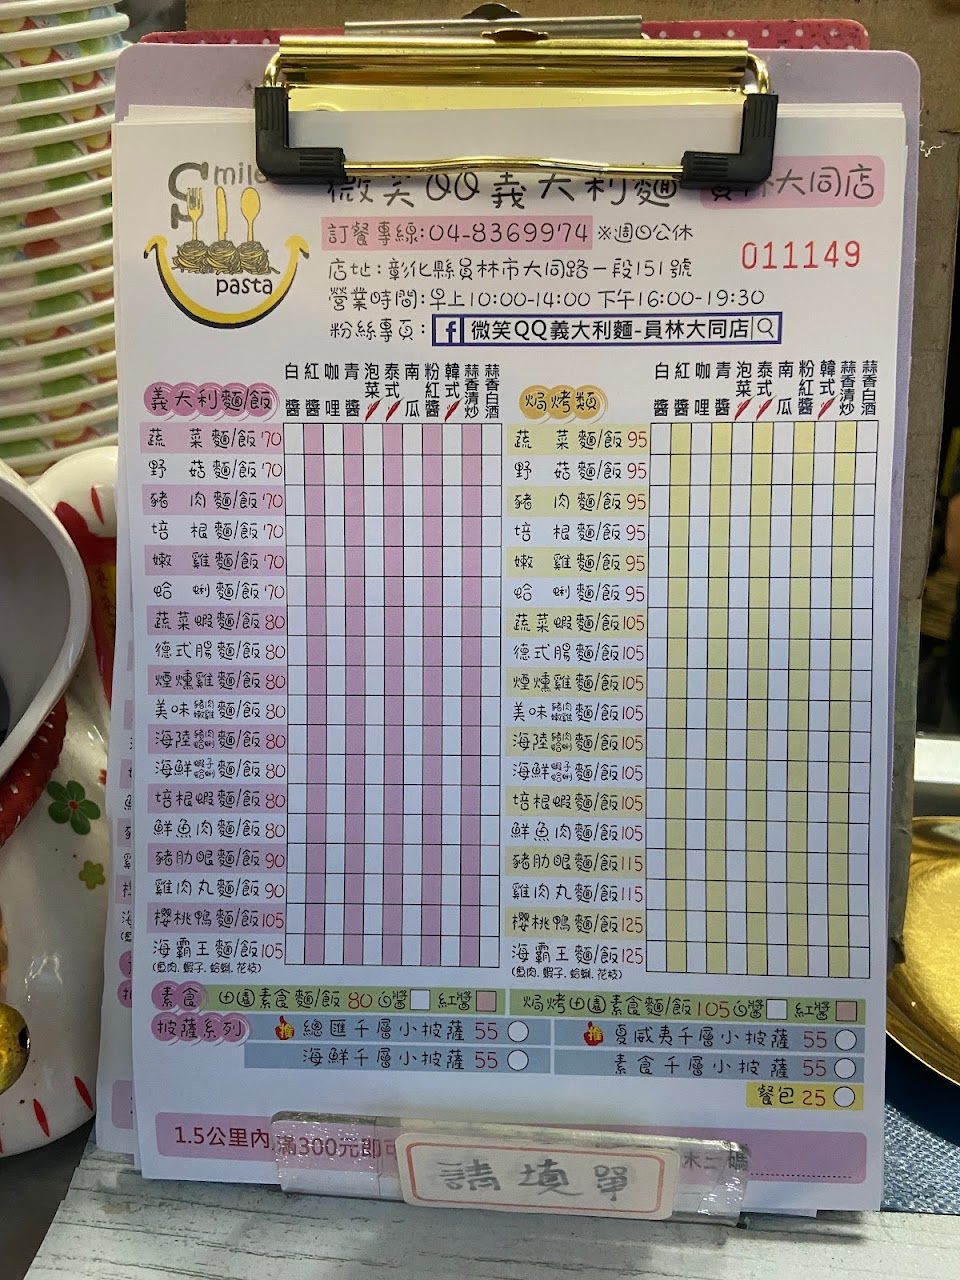 Smile
pasta
微笑QQ義大利麵 員林大同店
訂餐專線:04-8369974 ※週日公休
011149
店址:彰化縣員林市大同路一段151號
營業時間:早上10:00-14:00 下午16:00-19:30
粉絲專頁: f 微笑QQ義大利麵-員林大同店
義大利麵/飯 白醬 紅醬 咖哩 青醬 泡菜 泰式 南瓜 粉紅醬 韓式 蒜香清炒 蒜香白酒
蔬菜麵/飯70
野菇麵/飯70
豬肉麵/飯70
培根麵/飯70
嫩雞麵/飯70
蛤蜊麵/飯70
蔬菜蝦麵/飯80
德式腸麵/飯80
煙燻雞麵/飯80
美味豬肉嫩雞麵/飯80
海陸豬肉蛤蜊麵/飯80
海鮮蝦子蛤蜊麵/飯80
培根蝦麵/飯80
鮮魚肉麵/飯80
豬肋眼麵/飯90
雞肉丸麵/飯90
櫻桃鴨麵/飯105
海霸王麵/飯105
(魚肉.蝦子.蛤蜊.花枝)
焗烤類 白醬 紅醬 咖哩 青醬 泡菜 泰式 南瓜 粉紅醬 韓式 蒜香清炒 蒜香白酒
蔬菜麵/飯95
野菇麵/飯95
豬肉麵/飯95
培根麵/飯95
嫩雞麵/飯95
蛤蜊麵/飯95
蔬菜蝦麵/飯105
德式腸麵/飯105
煙燻雞麵/飯105
美味豬肉嫩雞麵/飯105
海陸豬肉蛤蜊麵/飯105
海鮮蝦子蛤蜊麵/飯105
培根蝦麵/飯105
鮮魚肉麵/飯105
豬肋眼麵/飯115
雞肉丸麵/飯115
櫻桃鴨麵/飯125
海霸王麵/飯125
(魚肉.蝦子.蛤蜊.花枝)
素食 田園素食麵/飯80 白醬 紅醬
焗烤田園素食麵/飯105 白醬 紅醬
披薩系列 推 總匯千層小披薩 55
推 夏威夷千層小披薩 55
海鮮千層小披薩 55
素食千層小披薩 55
餐包25
1.5公里內,滿300元即可
請填單